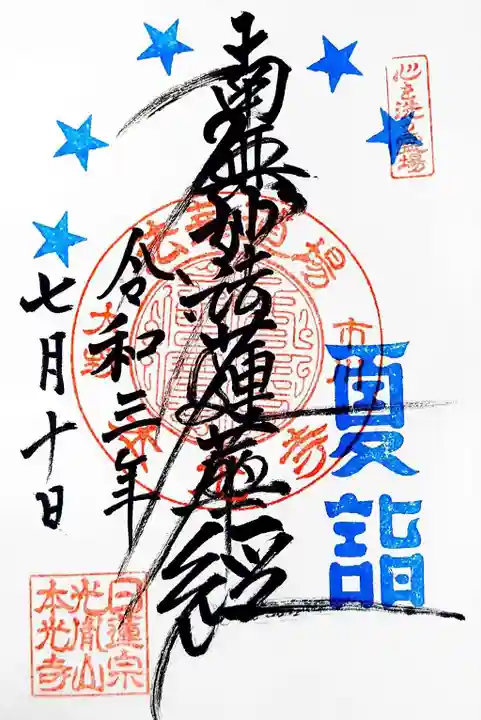 心を洗う霊場
南無妙法蓮華経
法華道場
市川
大野
夏詣
令和三年
七月十日
日蓮宗
光胤山
本光寺